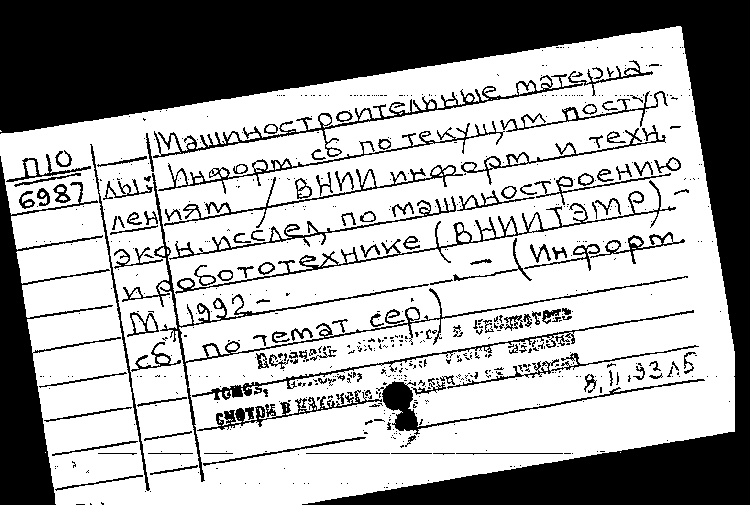 П10
6987
Машиностроительные материа-
лы: Информ. сб. по текущим поступ-
лениям / ВНИИ информ. и техн.-
экон. исслед. по машиностроению
и робототехнике (ВНИИТЭМР). -
М., 1992- . - (Информ.
сб. по темат. сер.)
Перечень имеющихся в библиотеке
томов, номеров, этого издания
смотри в изданий
8.II.93 ЛБ